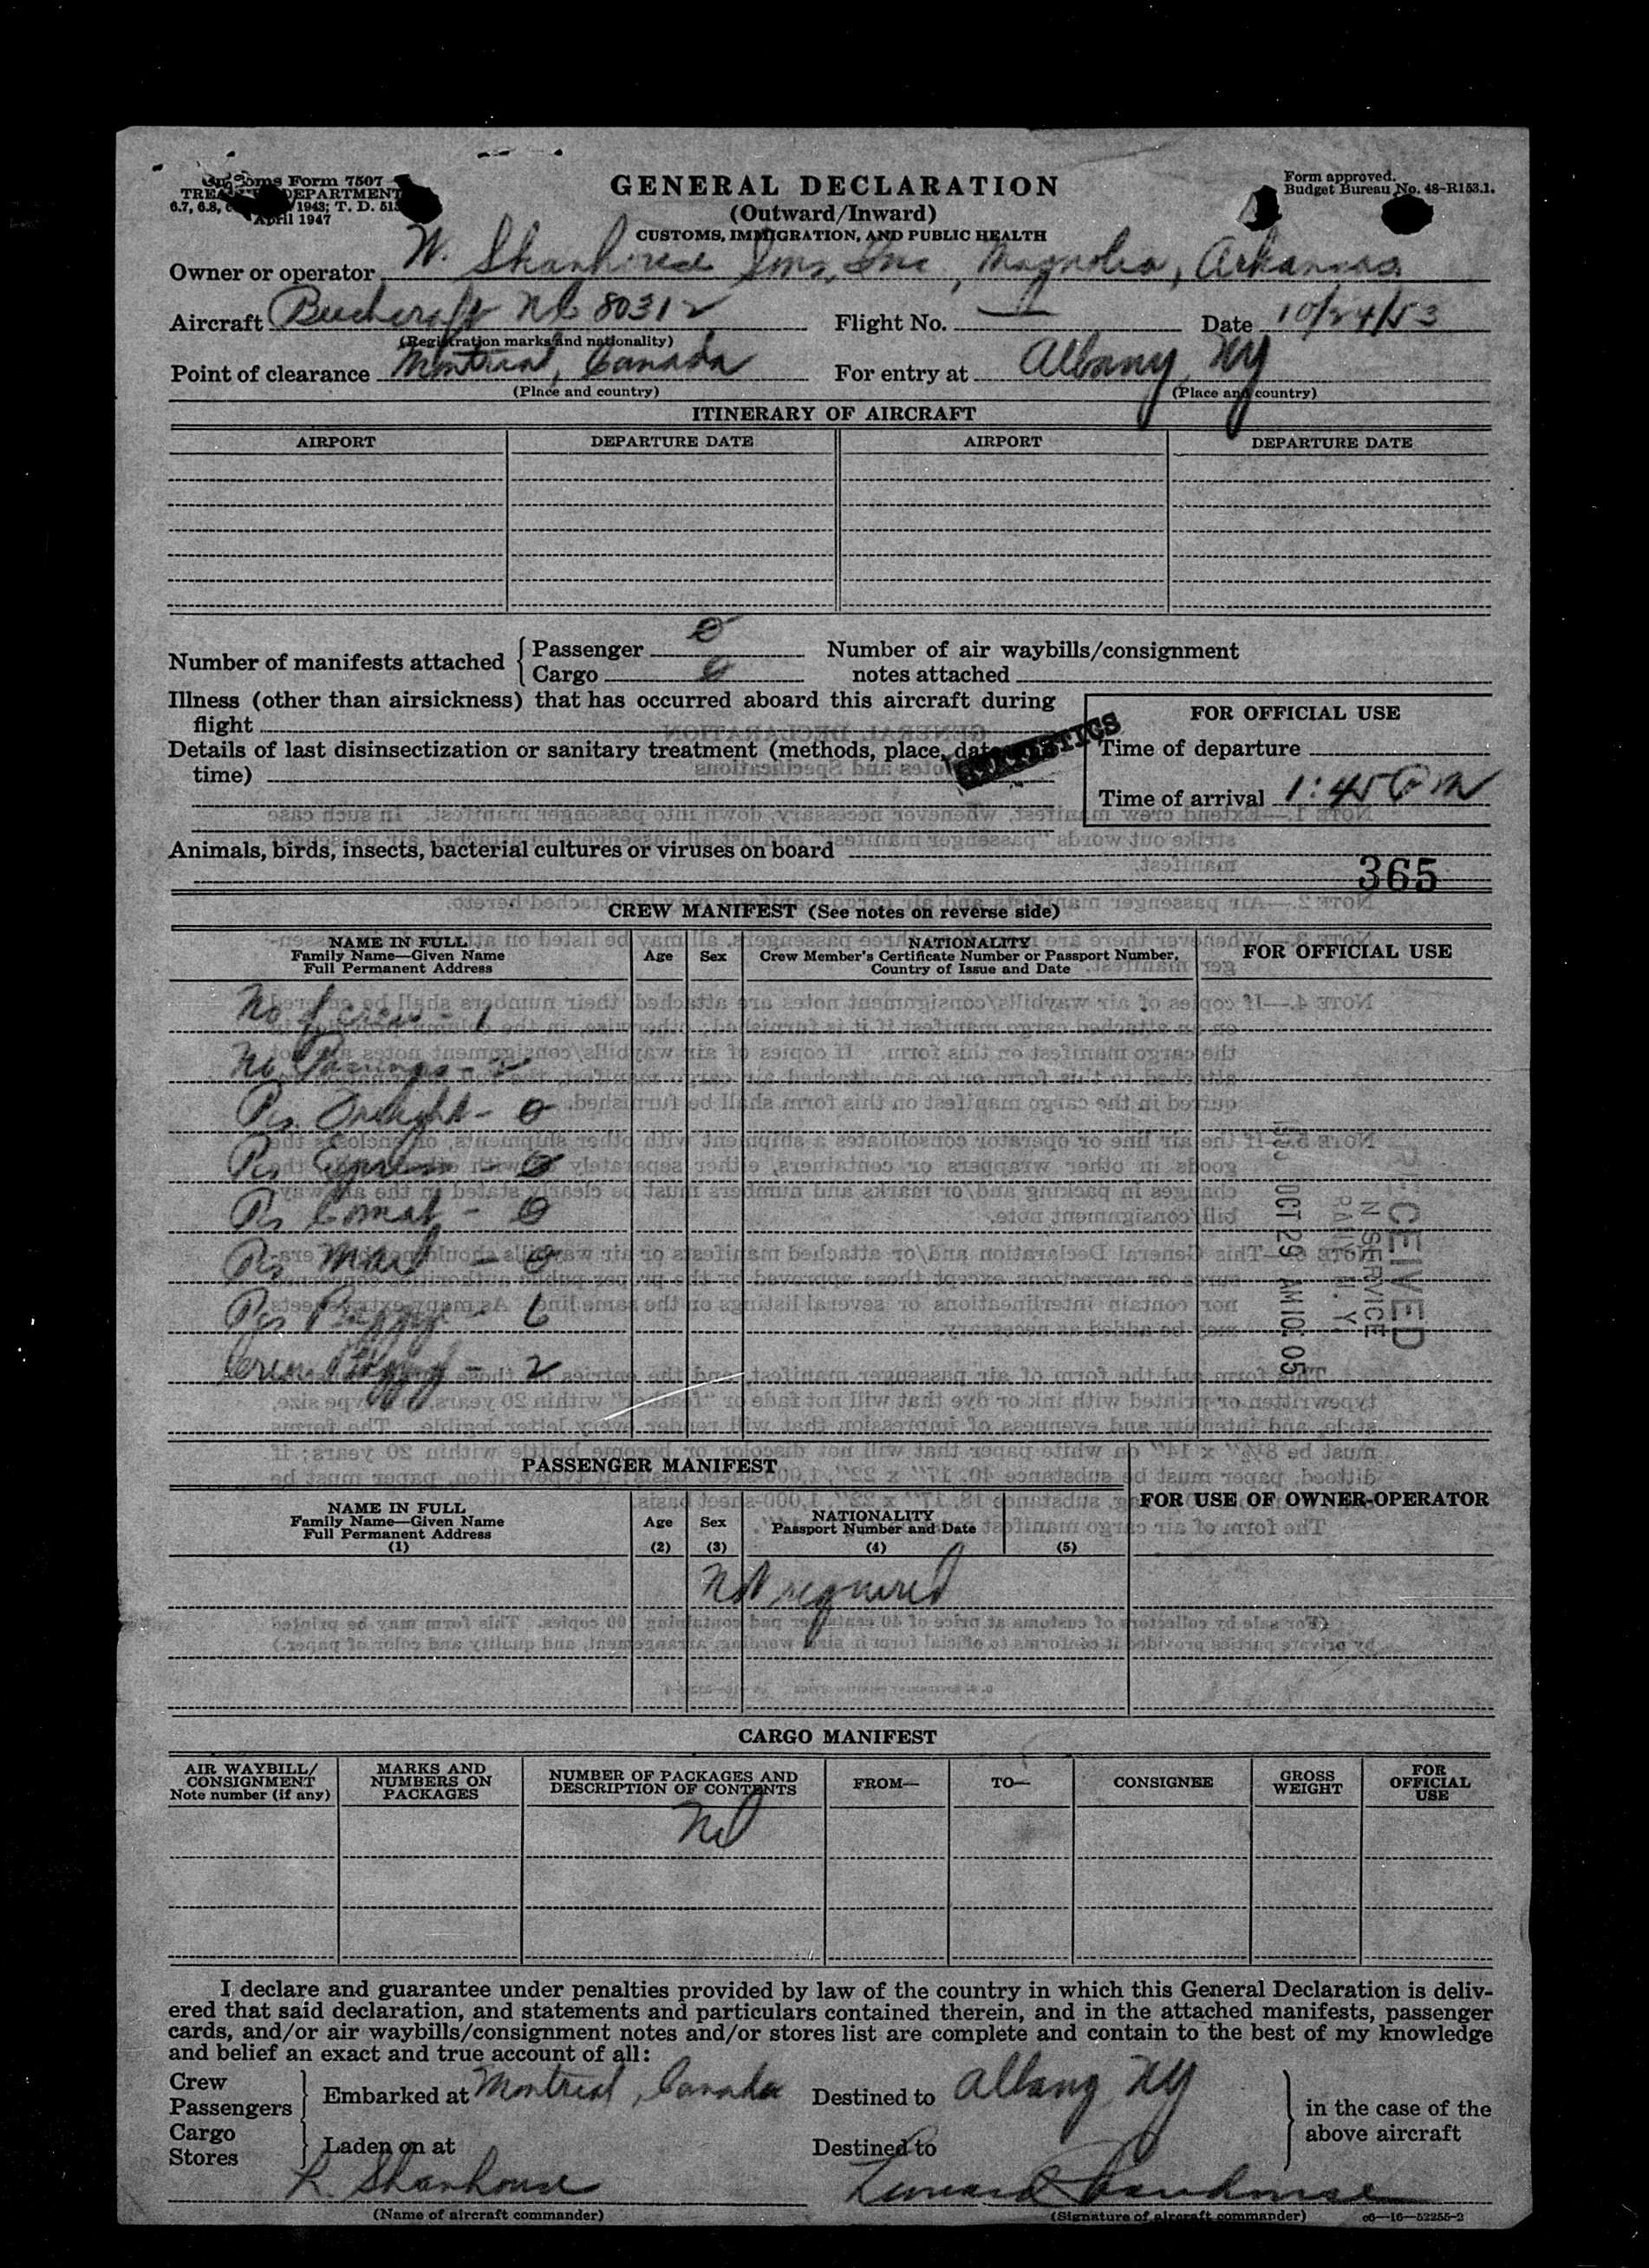 Customs Form 7507
TREASURY DEPARTMENT
6.7, 6.8, 1943; T. D. 515
April 1947
GENERAL DECLARATION
(Outward/Inward)
CUSTOMS, IMMIGRATION, AND PUBLIC HEALTH
Form approved.
Budget Bureau No. 48-R153.1.
Owner or operator W. Shanhouse Sons, Inc, Magnolia, Arkansas
Aircraft Beechcraft NC 80312 Flight No. Date 10/24/53
(Registration marks and nationality)
Point of clearance Montreal, Canada For entry at Albany NY
(Place and country) (Place and country)
ITINERARY OF AIRCRAFT
AIRPORT DEPARTURE DATE AIRPORT DEPARTURE DATE
Number of manifests attached Passenger 0 Number of air waybills/consignment
Cargo 0 notes attached
Illness (other than airsickness) that has occurred aboard this aircraft during
flight
FOR OFFICIAL USE
Details of last disinsectization or sanitary treatment (methods, place, date,
time)
STATISTICS
Time of departure
Time of arrival 1:45 PM
Animals, birds, insects, bacterial cultures or viruses on board
365
CREW MANIFEST (See notes on reverse side)
NAME IN FULL
Family Name—Given Name
Full Permanent Address
Age Sex
NATIONALITY
Crew Member's Certificate Number or Passport Number,
Country of Issue and Date
FOR OFFICIAL USE
No of crew - 1
No Passengs - 2
Pcs. Freight - 0
Pcs Express - 0
Pcs Comat - 0
Pcs Mail - 0
Pcs Baggage - 6
Crew Baggage - 2
RECEIVED
SERVICE
N. Y.
OCT 29 AM 10:05
PASSENGER MANIFEST
NAME IN FULL
Family Name—Given Name
Full Permanent Address
(1)
Age
(2)
Sex
(3)
NATIONALITY
Passport Number and Date
(4) (5)
FOR USE OF OWNER-OPERATOR
Not required
CARGO MANIFEST
AIR WAYBILL/
CONSIGNMENT
Note number (if any)
MARKS AND
NUMBERS ON
PACKAGES
NUMBER OF PACKAGES AND
DESCRIPTION OF CONTENTS
FROM—
TO—
CONSIGNEE
GROSS
WEIGHT
FOR
OFFICIAL
USE
Nil
I declare and guarantee under penalties provided by law of the country in which this General Declaration is deliv-
ered that said declaration, and statements and particulars contained therein, and in the attached manifests, passenger
cards, and/or air waybills/consignment notes and/or stores list are complete and contain to the best of my knowledge
and belief an exact and true account of all:
Crew
Passengers
Embarked at Montreal, Canada Destined to Albany NY
Cargo
Stores
Laden on at Destined to
in the case of the
above aircraft
L. Shanhouse
(Name of aircraft commander) (Signature of aircraft commander) c6—16—52255-2